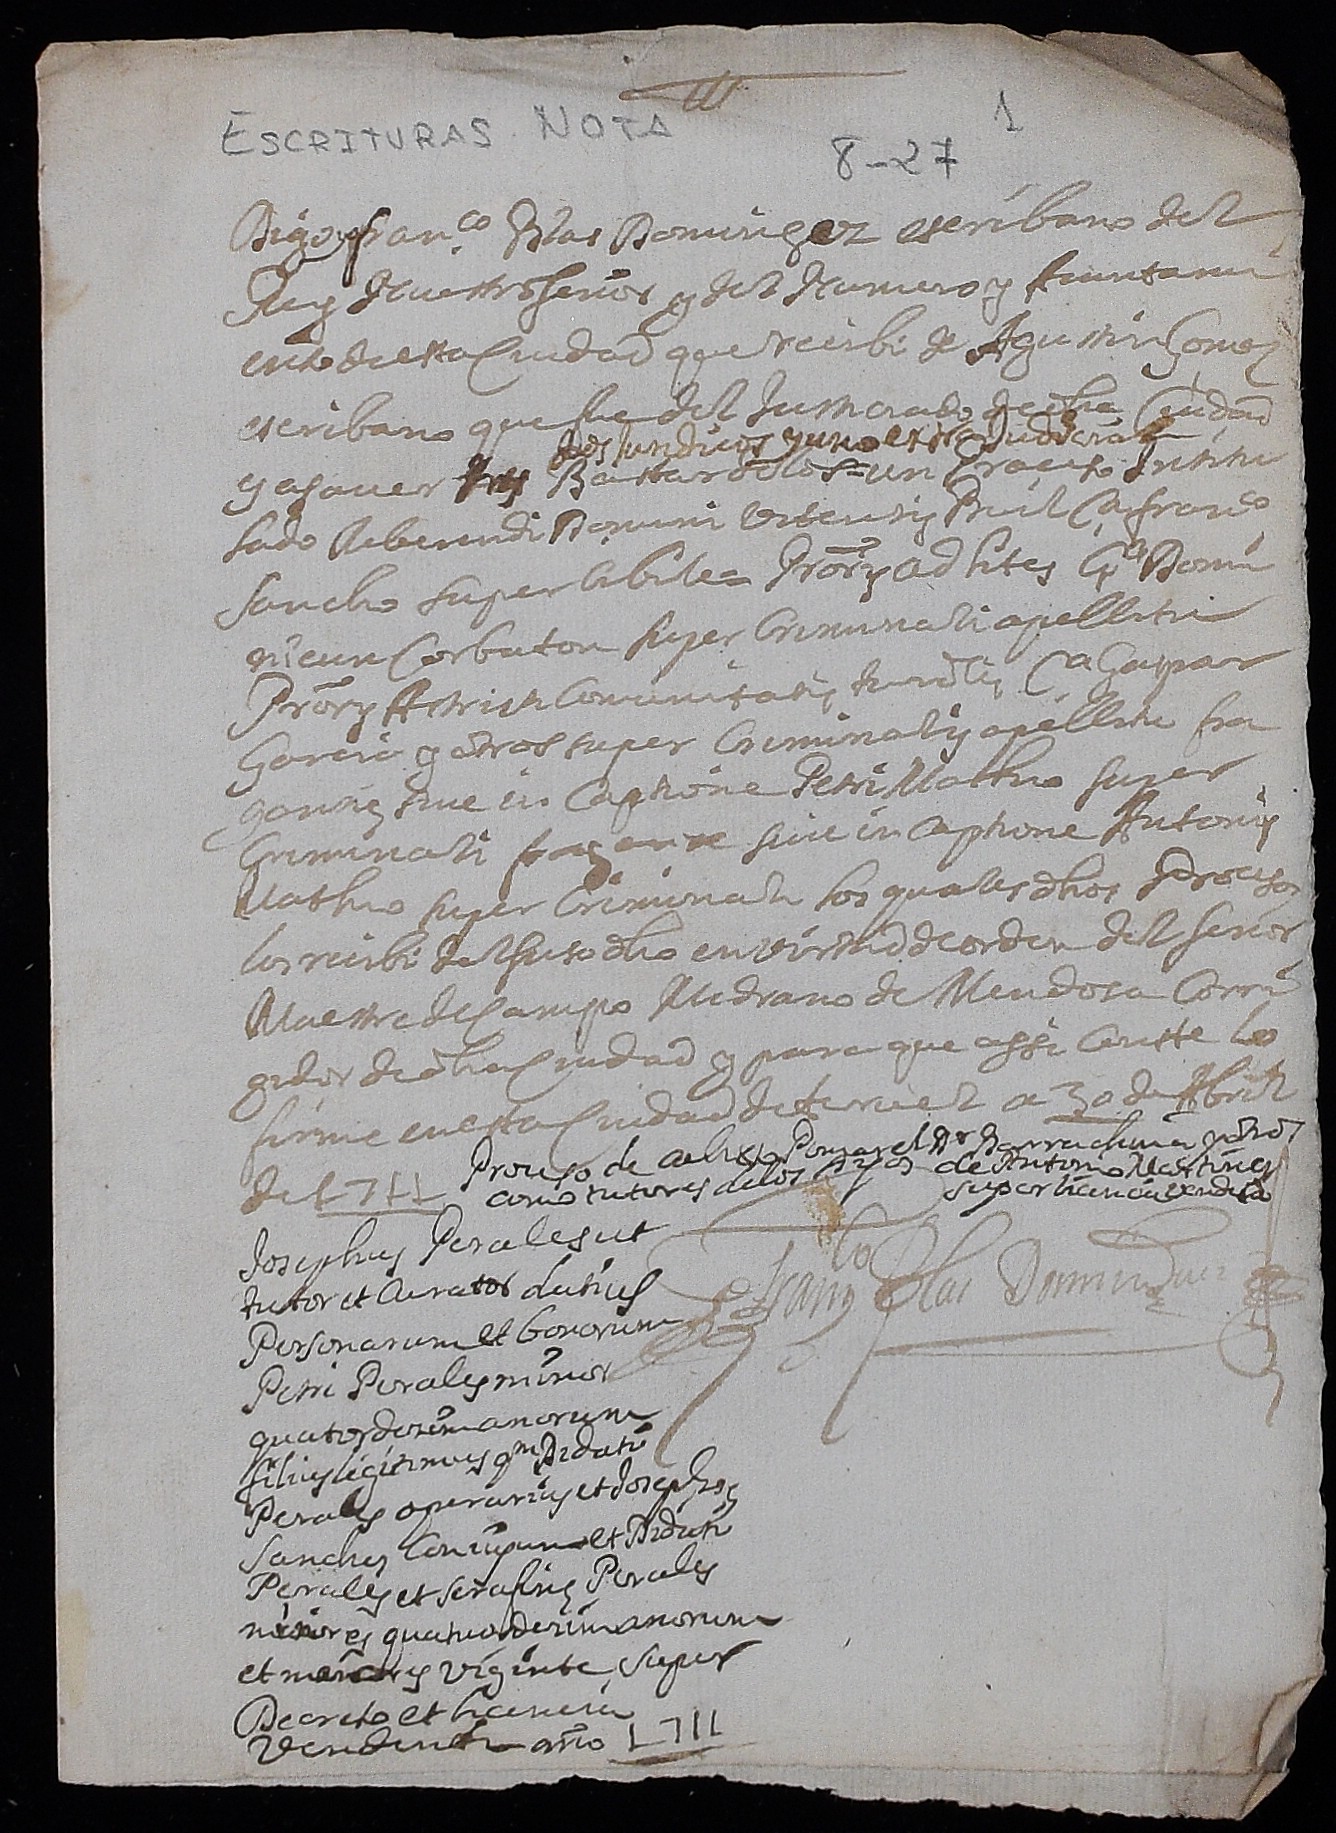 ESCRITURAS NOTA
1
8-27
Digo yo fran.co Blas Dominguez escribano del
Rey Nuestro Señor y del Numero y Aiuntami
ento de esta Ciudad que recibi de Agustin Gomez
escribano que fue del Justiciado de dha Ciudad
dos Juridicos y uno extra Judicial
y a saver tres Bastardelos = un Proceso Intitu
lado Reberendi Domini
Sancho super = Prõris ad lites Cª Domi
nicum Corbaton super Criminali apellitu
Prõris Astricti Comunitatis turolij Cª Gaspar
Garcia y otros super Criminalis apellitu fra
gantis sive in Captione Petri Matheo super
Criminali fragante sive in Captione Antonij
Matheo super Criminali los quales dhos Procesos
los recibi del suso dho en virtud de orden del Señor
Maestre de Campo Medrano de Mendosa Corri
gidor de dha Ciudad y para que assi Conste lo
firme en esta Ciudad de teruel a 30 de Abril
de 1711
Proceso de Pomar el Dr Barrachina y otros
como tutores de los de Antonio Martinez
super licencia vendendi
Franco Blas Dominguez
Josephus Perales ut
tutor et Curator datius
Personarum et bonorum
Petri Perales minor
quatordecim anorum
filius legitimus qm Didaci
Perales operarius et Josepha
Sanchez Coniugum et Didaci
Perales et Serafina Perales
minores quatuordecim anorum
et menores viginte super
Decreto et licencia
Vendendi año 1711